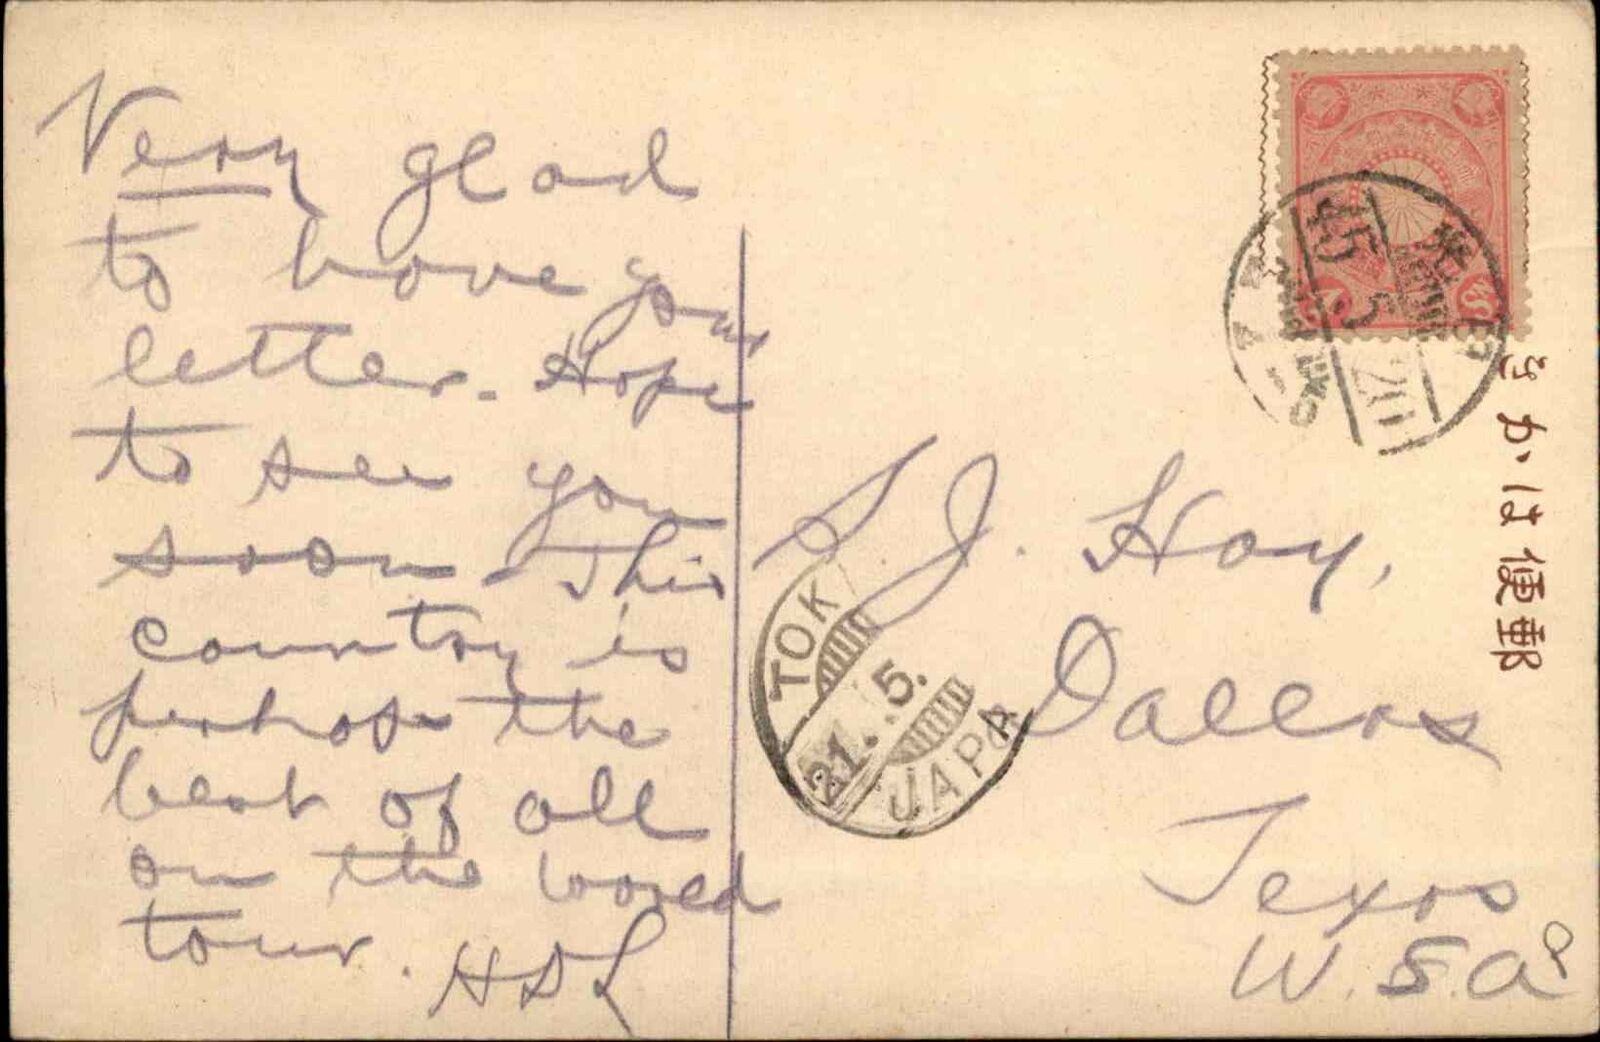 Very glad
to have your
letter. Hope
to see you
soon. This
country is
perhaps the
best of all
on the world
tour. HDL
S J. Hoy,
Dallas
Texas
U.S.A
きかは便郵
45 5
TOK
21. .5.
JAPA